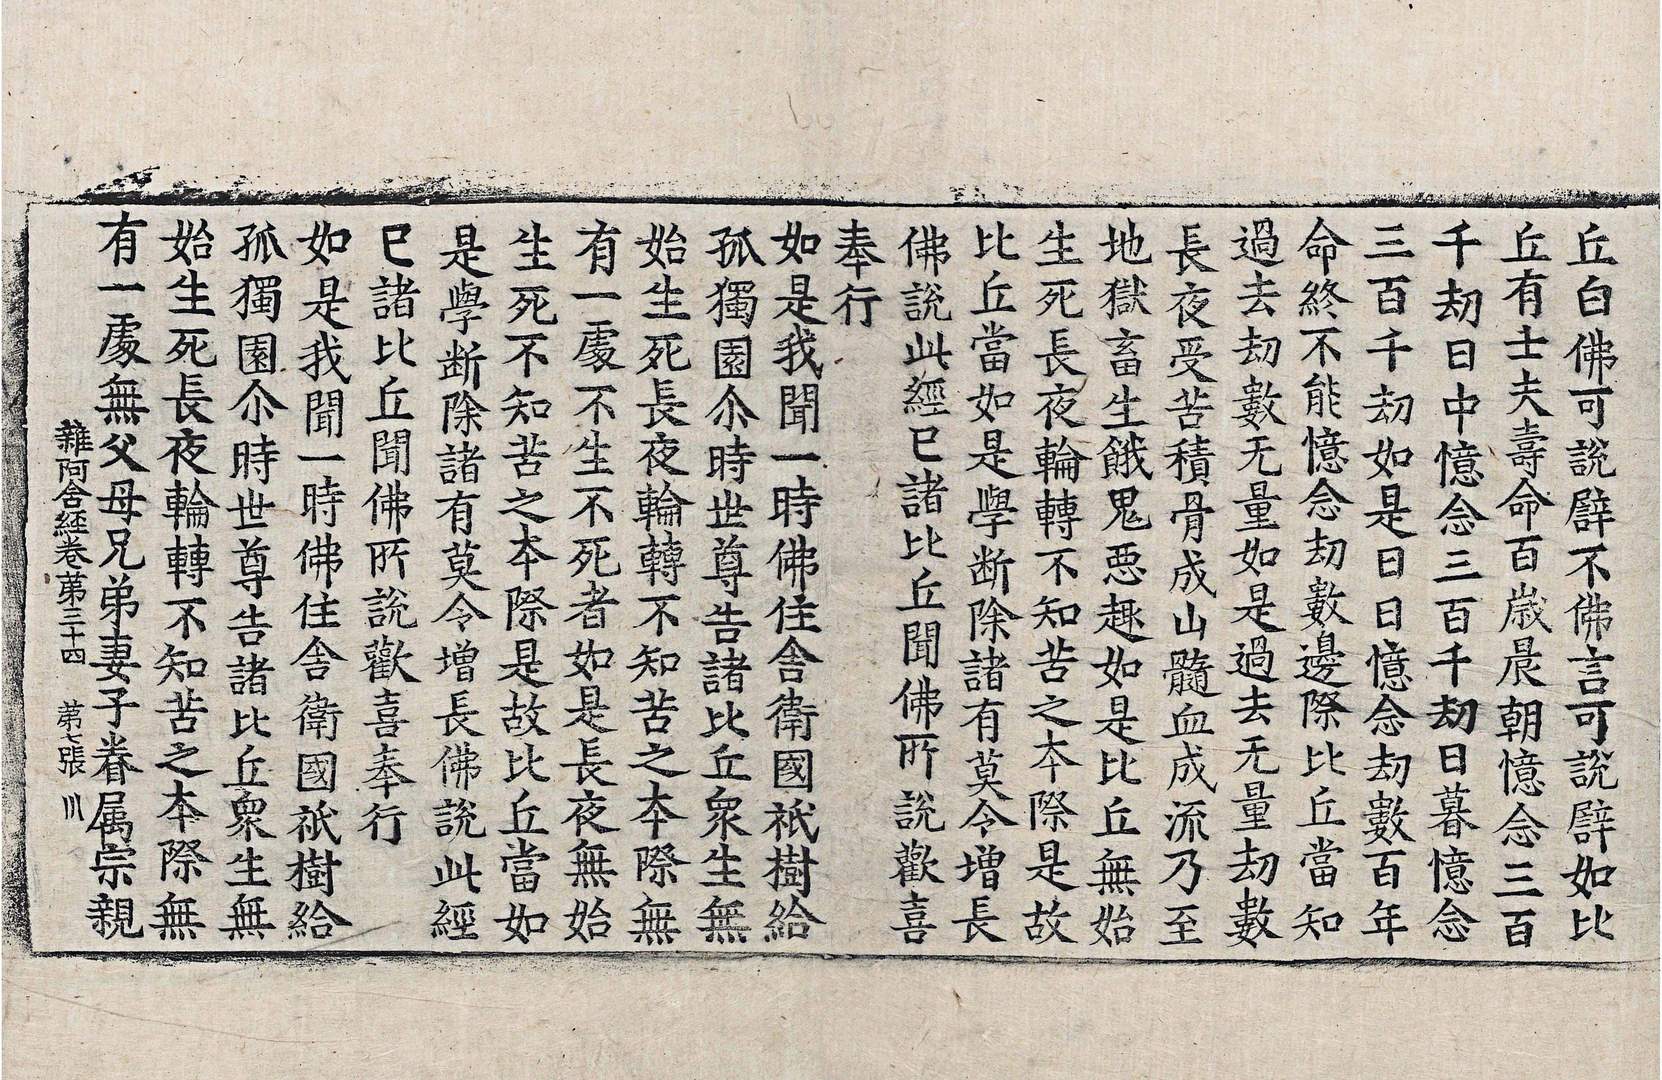 丘白佛可說譬不佛言可說譬如比
丘有士夫壽命百歲晨朝憶念三百
千劫日中憶念三百千劫日暮憶念
三百千劫如是日日憶念劫數百年
命終不能憶念劫數邊際比丘當知
過去劫數无量如是過去无量劫數
長夜受苦積骨成山髓血成流乃至
地獄畜生餓鬼惡趣如是比丘無始
生死長夜輪轉不知苦之本際是故
比丘當如是學断除諸有莫令增長
佛說此經已諸比丘聞佛所說歡喜
奉行
如是我聞一時佛住舍衛國祇樹給
孤獨園尒時世尊告諸比丘衆生無
始生死長夜輪轉不知苦之本際無
有一處不生不死者如是長夜無始
生死不知苦之本際是故比丘當如
是學断除諸有莫令增長佛說此經
已諸比丘聞佛所說歡喜奉行
如是我聞一時佛住舍衛國祇樹給
孤獨園尒時世尊告諸比丘衆生無
始生死長夜輪轉不知苦之本際無
有一處無父母兄弟妻子眷属宗親
雜阿含經卷第三十四 第七張 川